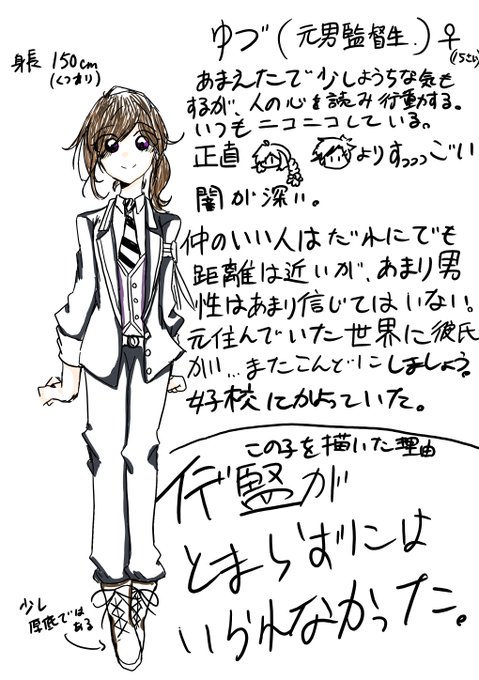 ゆづ(元男監督生.)♀
(15さい)
身長 150cm
(くつあり)
あまえたで少しようちな気も
するが、人の心を読み行動する。
いつもニコニコしている。
正直 よりすっっっごい
闇が深い。
仲のいい人はだれにでも
距離は近いが、あまり男
性はあまり信じてはいない。
元住んでいた世界に彼氏
が…またこんどにしましょう。
女子校にかよっていた。
この子を描いた理由
が
とまらずには
いられなかった。
少し
厚底では
ある